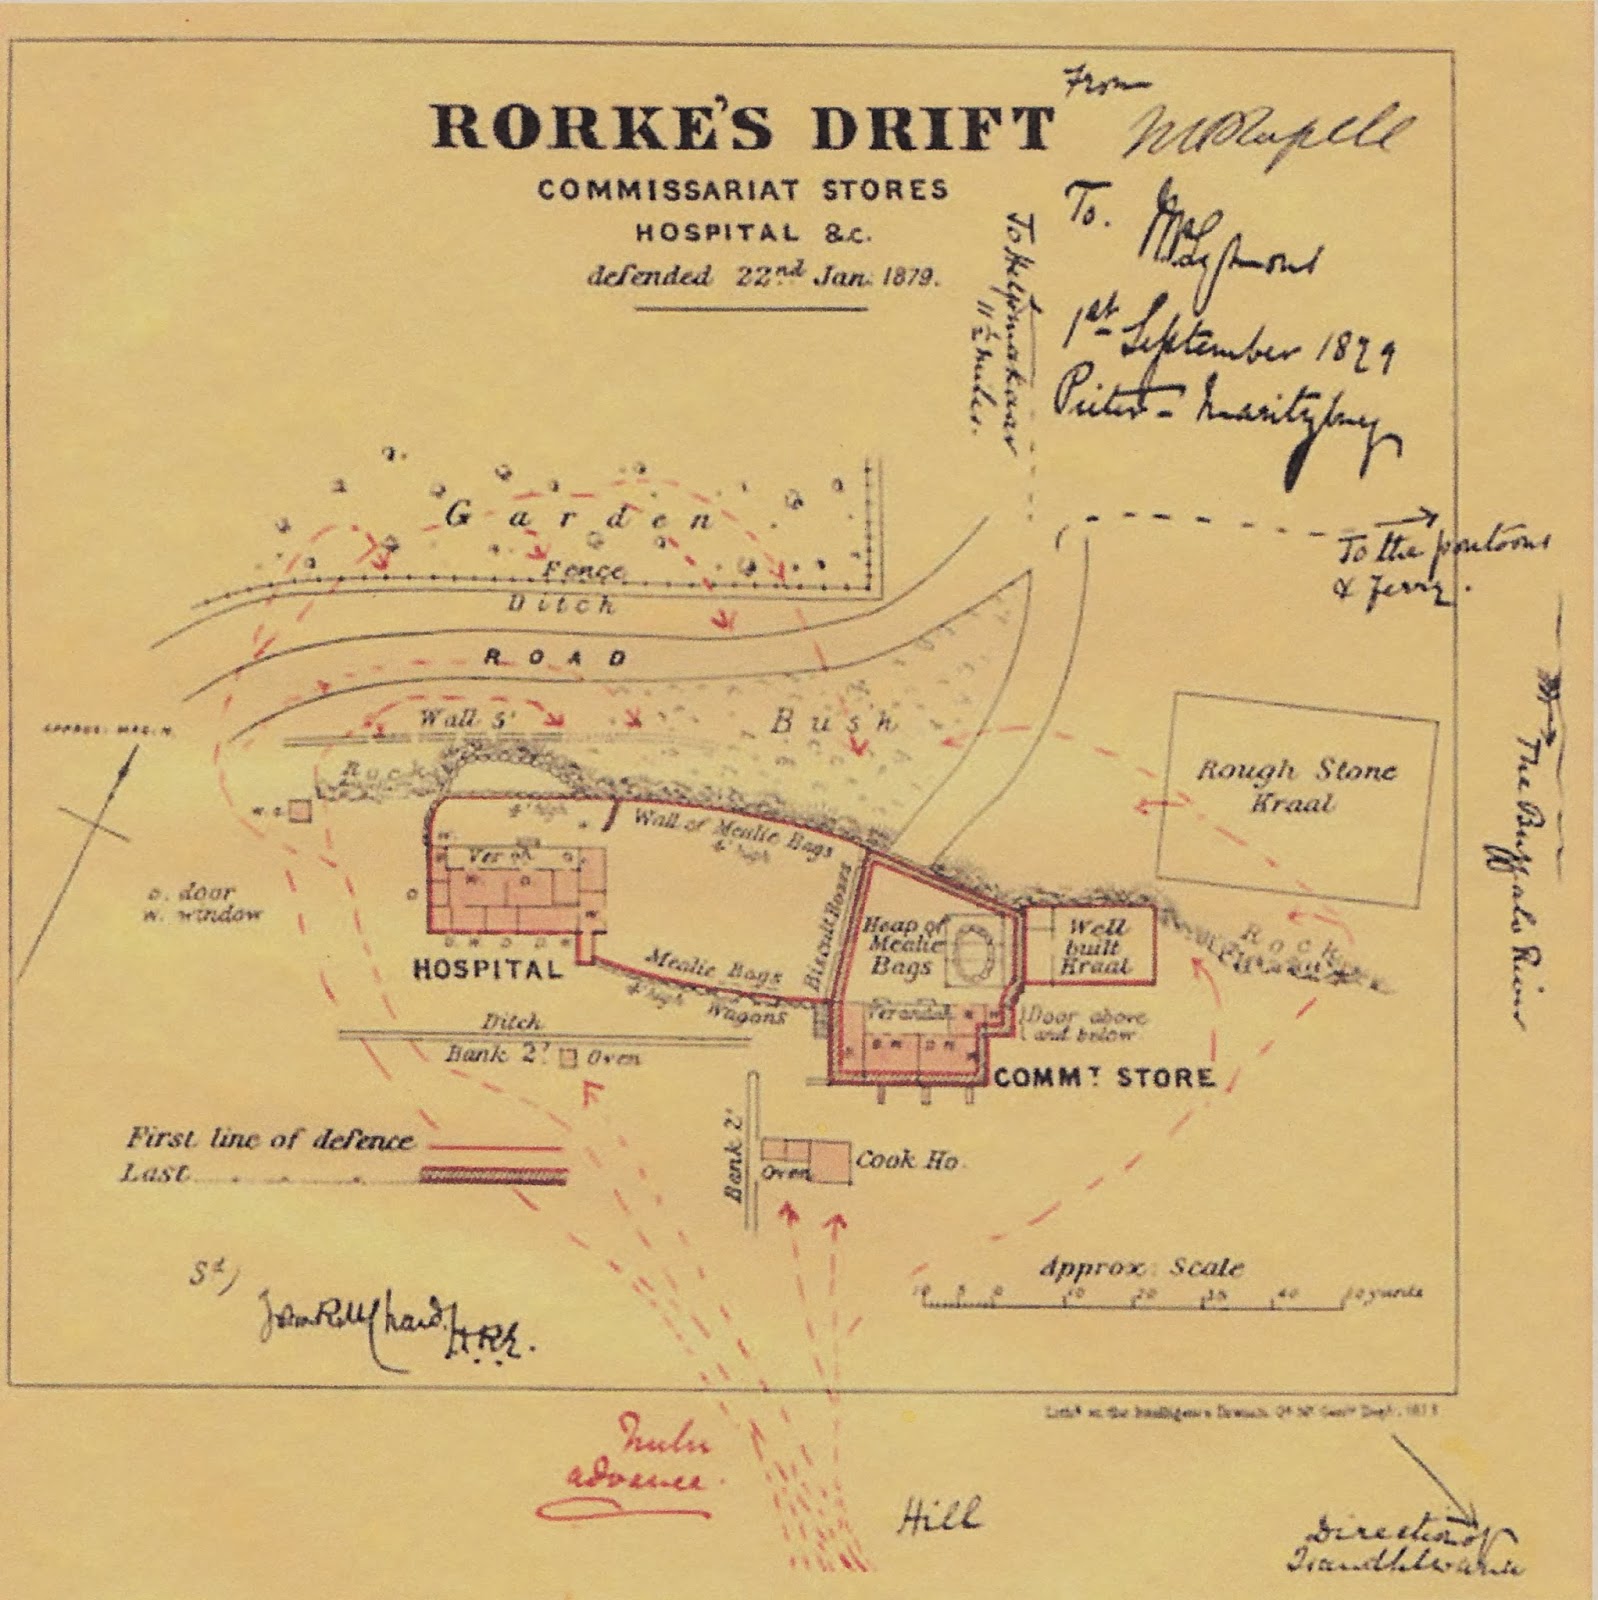 RORKE'S DRIFT
COMMISSARIAT STORES
HOSPITAL &c.
defended 22nd Jan: 1879.
From
To.
1st September 1879
Pieter-Maritzburg
To Helpmakaar
11½ miles.
To the pontoons
& Ferry.
The Buffalo River
Garden
Fence
Ditch
ROAD
Wall 5'
Bush
Rough Stone
Kraal
APPROX: MAG. N.
Rock
4' high
Wall of Mealie Bags
4' high
D. door
W. window
HOSPITAL
Mealie Bags
4' high
Wagons
Biscuit Boxes
Heap of
Mealie
Bags
Well
built
Kraal
Rock
Verandah
Door above
and below
COMMT STORE
Ditch
Bank 2'
Oven
Bank 2'
Oven
Cook Ho.
First line of defence
Last
Approx: Scale
10 5 0 10 20 40
yards
Sd)
John R. M. Chard
R.E.
Zulu
advance.
Hill
Direction of
Isandhlwana